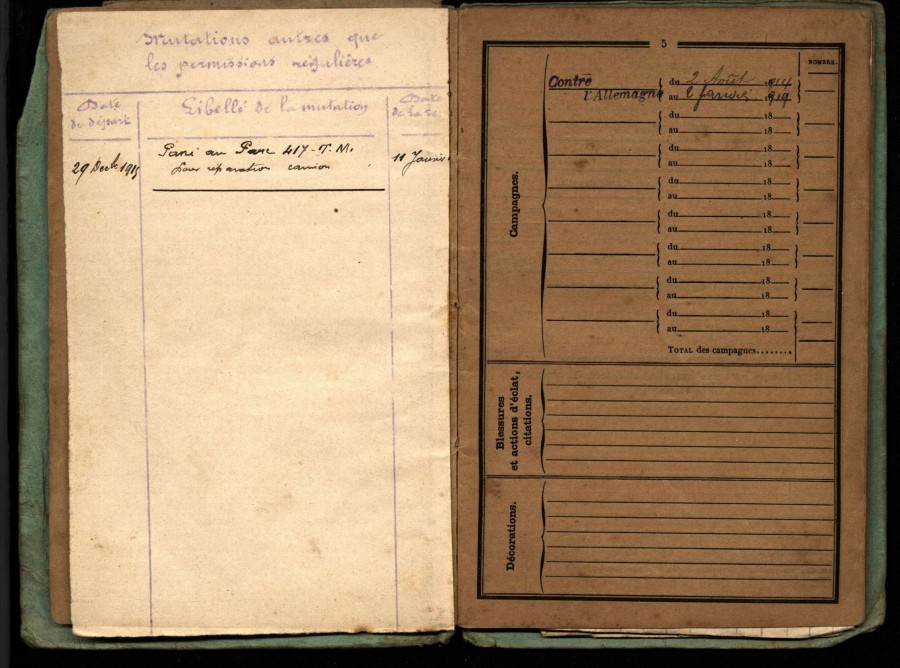 Mutations autres que
les permissions régulières
Date
de départ
Libellé de la mutation
Date
de la
29 Dech 1915
au Parc 417-T.M.
pour réparation camion
11 Janvi
5
NOMBRE.
Contre
l'Allemagne
du 2 Août 1914
au Janvier 1919
du 18
au 18
du 18
au 18
du 18
au 18
du 18
au 18
du 18
au 18
du 18
au 18
du 18
au 18
TOTAL des campagnes........
Campagnes.
Blessures
et actions d'éclat,
citations.
Décorations.